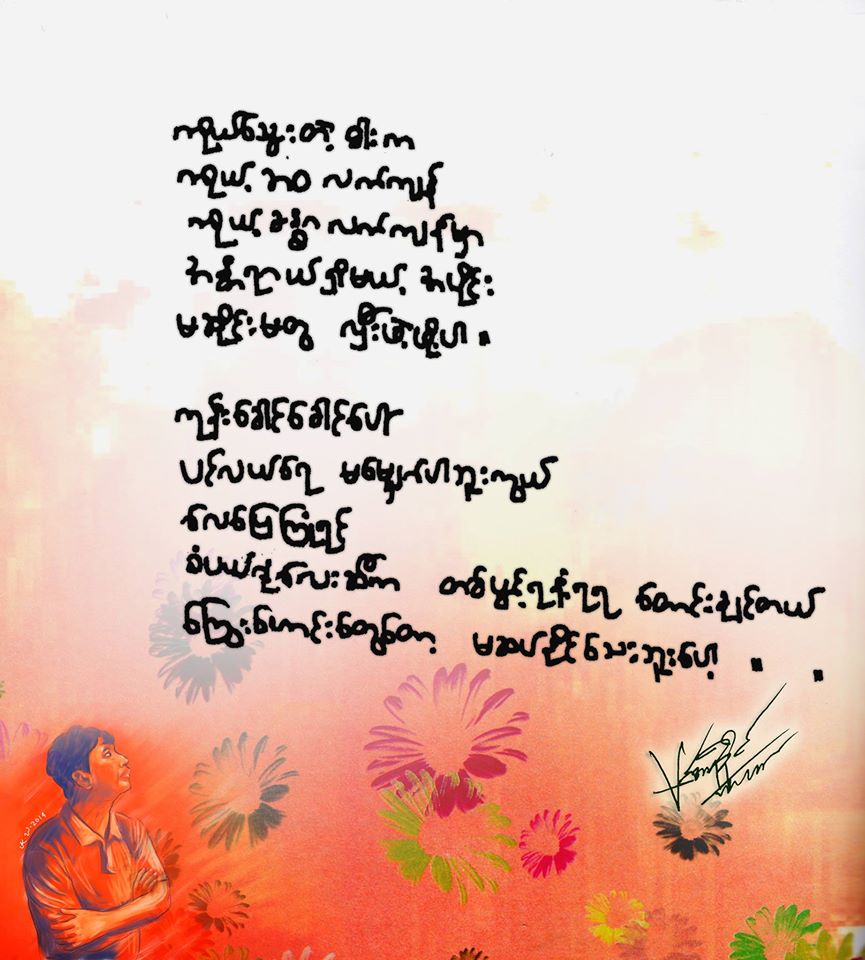 ကိုယ်သွေးတဲ့ ဓါးက
ကိုယ့် ဘဝ လက်ကျန်
ကိုယ့် ခန္ဓာ လက်ကျန်မှာ
အန္တရာယ်ရှိမယ့် အပိုင်း
မဆိုင်းမတွ လှီးဖဲ့ဖို့ပါ ။
ကျွန်းခေါင်ခေါင်ပေါ်
ပင်လယ်ရေ မမျှော်ပါဘူးကွယ်
လေပြေကြုံရင်
စံပယ်ရုံလေးဆီက တစ်ပွင့်ရနံ့ရရ တောင်းချင်တယ်
ကြွေးဟောင်းတွေတော့ မဆပ်နိုင်သေးဘူးပေါ့ ။ ။